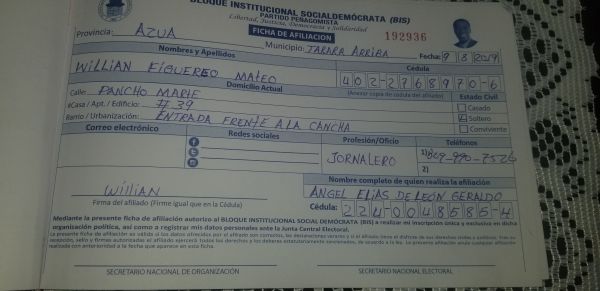 BLOQUE INSTITUCIONAL SOCIALDEMÓCRATA (BIS)
PARTIDO PEÑAGOMISTA
Libertad, Justicia, Democracia y Solidaridad
FICHA DE AFILIACION
192936
Provincia: AZUA
Municipio: TABARA ARRIBA
Fecha: 9 8 2019
Nombres y Apellidos
Cédula
WILLIAN FIGUEREO MATEO
402-2768970-6
Domicilio Actual
(Anexar copia de cédula del afiliado)
Calle: PANCHO MARIE
Estado Civil
#Casa / Apt. / Edificio: # 39
Casado
Soltero
Barrio / Urbanización: ENTRADA FRENTE A LA CANCHA
Conviviente
Correo electrónico
Redes sociales
Profesión/Oficio
Teléfonos
JORNALERO
1) 829-990-7526
2)
Nombre completo de quien realiza la afiliación
ANGEL ELIAS DE LEÓN GERALDO
Willian
Firma del afiliado (Firme igual que en la Cédula)
Cédula: 224-0048585-4
Mediante la presente ficha de afiliación autorizo al BLOQUE INSTITUCIONAL SOCIAL DEMÓCRATA (BIS) a realizar mi inscripción única y exclusiva en dicha
organización política, así como a registrar mis datos personales ante la Junta Central Electoral.
SECRETARIO NACIONAL DE ORGANIZACIÓN
SECRETARIO NACIONAL ELECTORAL